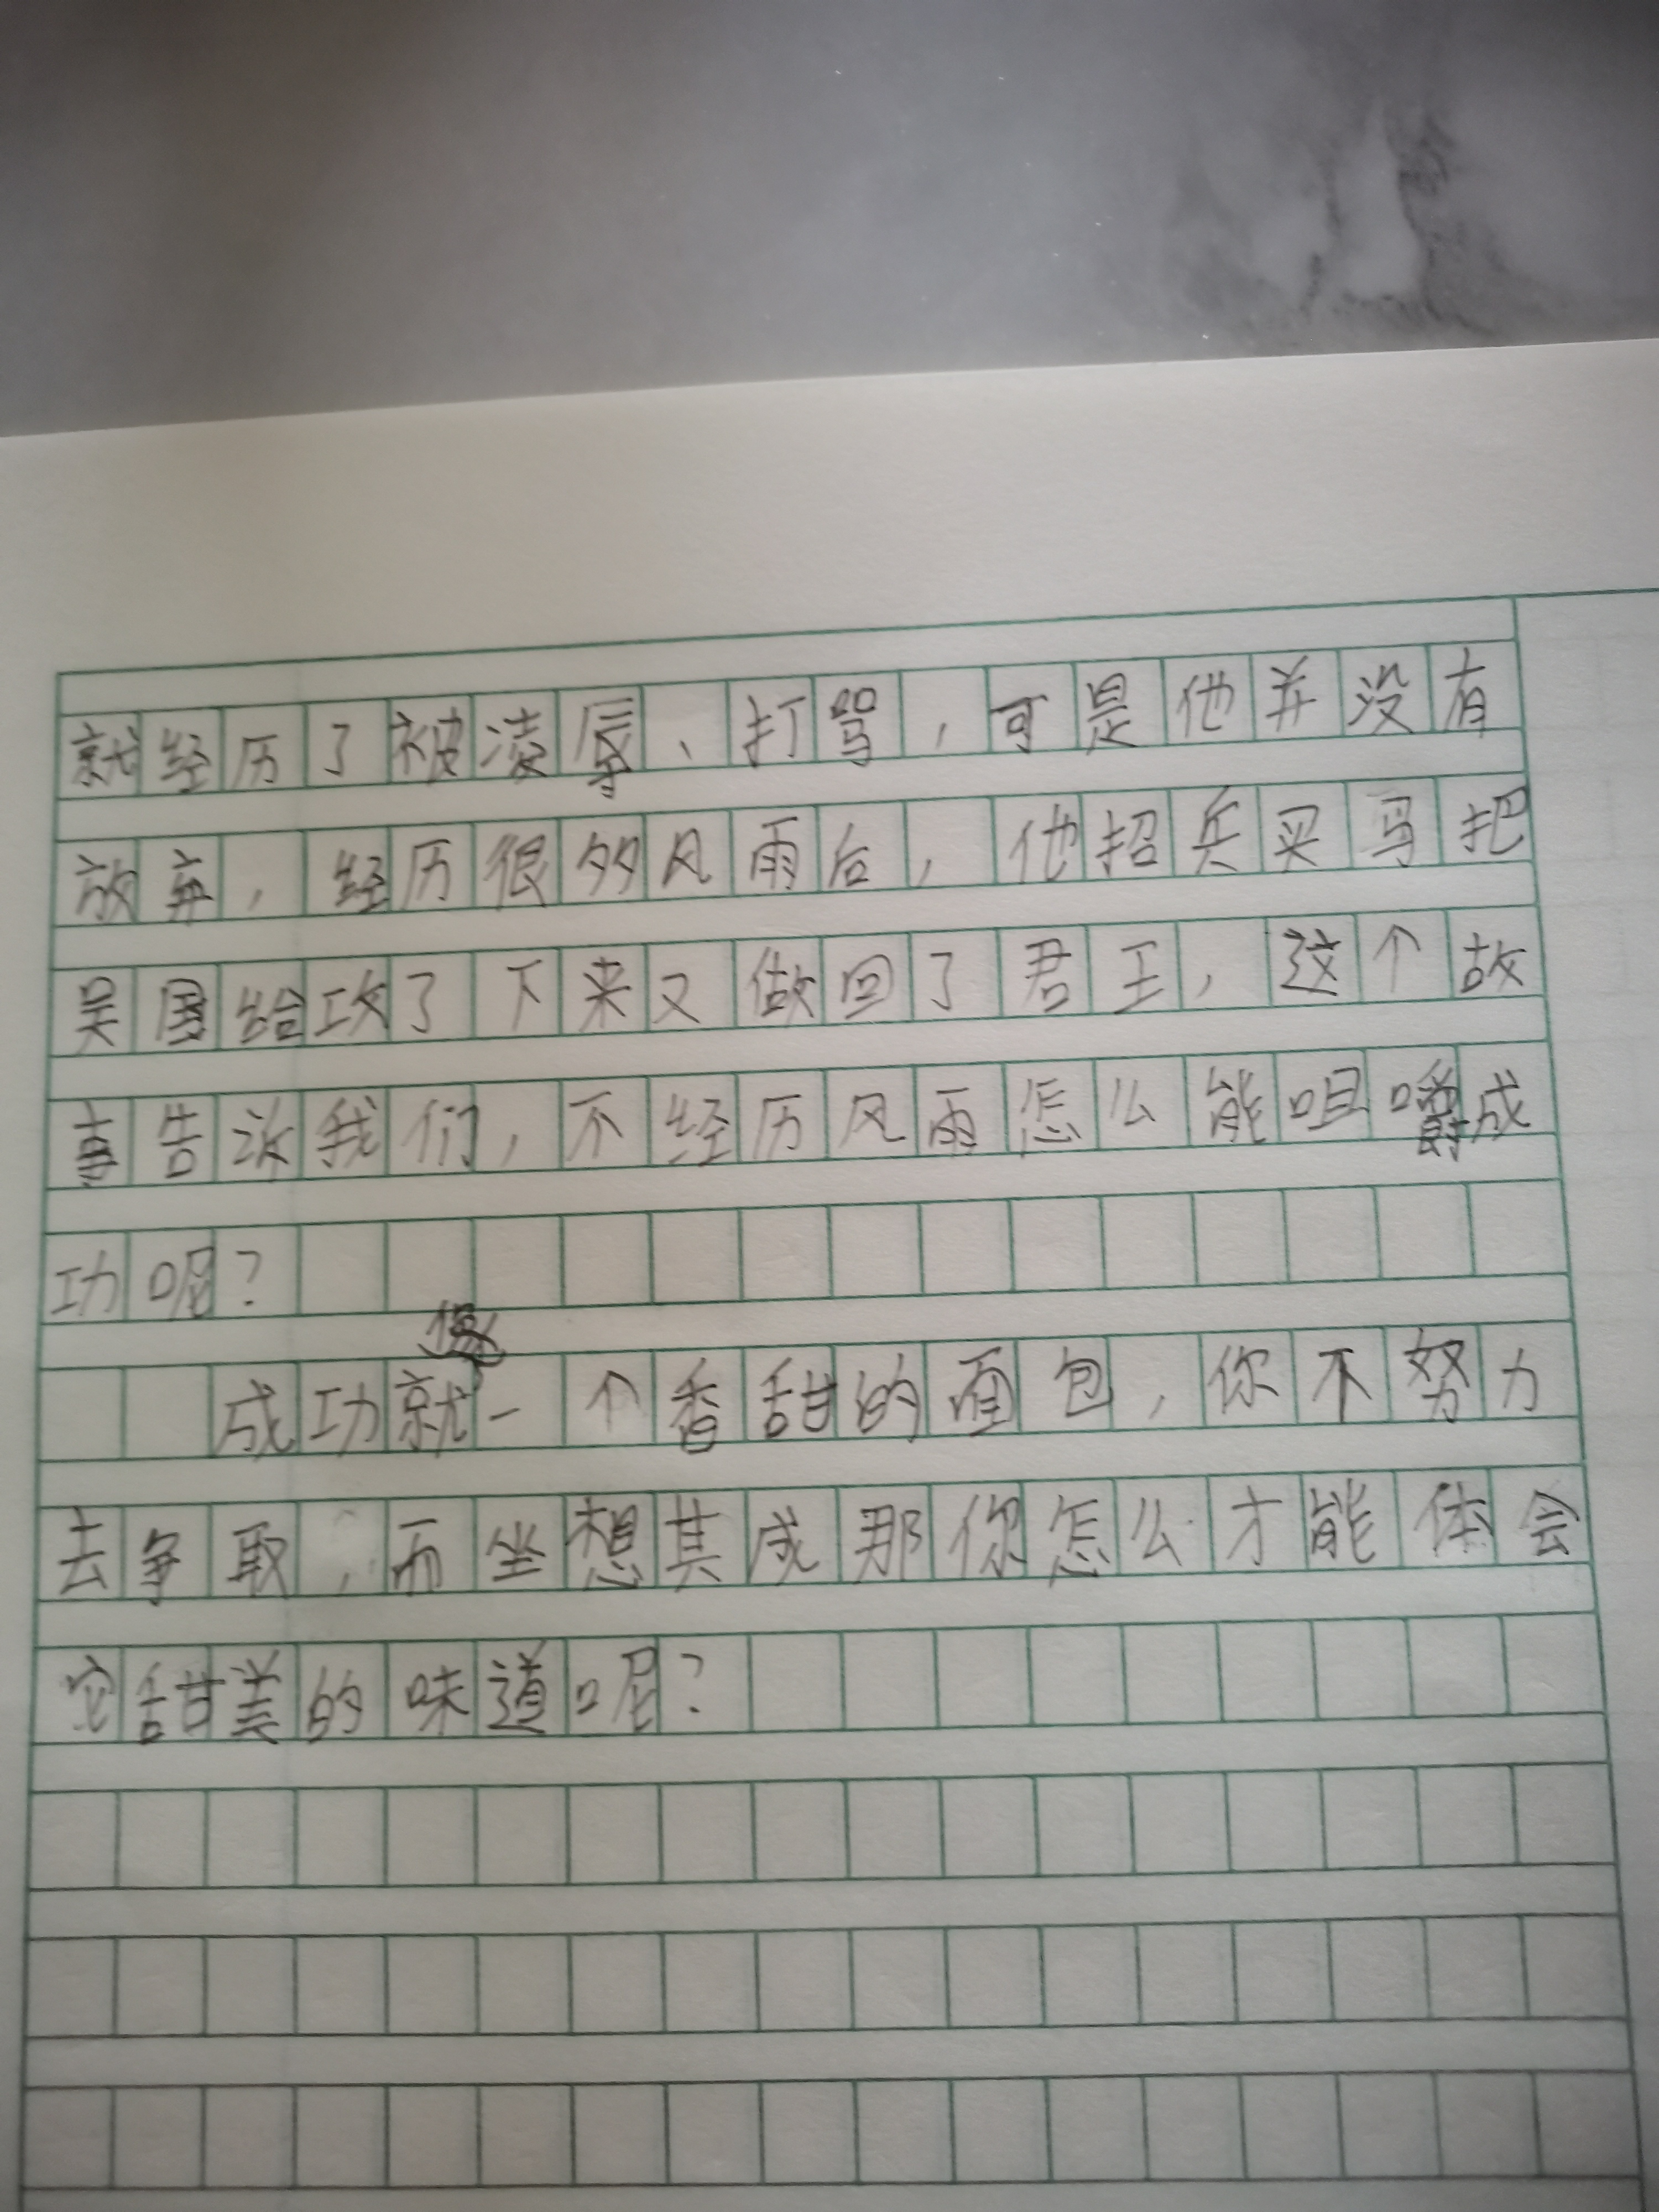 就经历了被凌辱、打骂，可是他并没有
放弃，经历很多风雨后，他招兵买马把
吴国给攻了下来又做回了君王，这个故
事告诉我们，不经历风雨怎么能咀嚼成
功呢？
成功就像一个香甜的面包，你不努力
去争取，而坐想其成那你怎么才能体会
它甜美的味道呢？